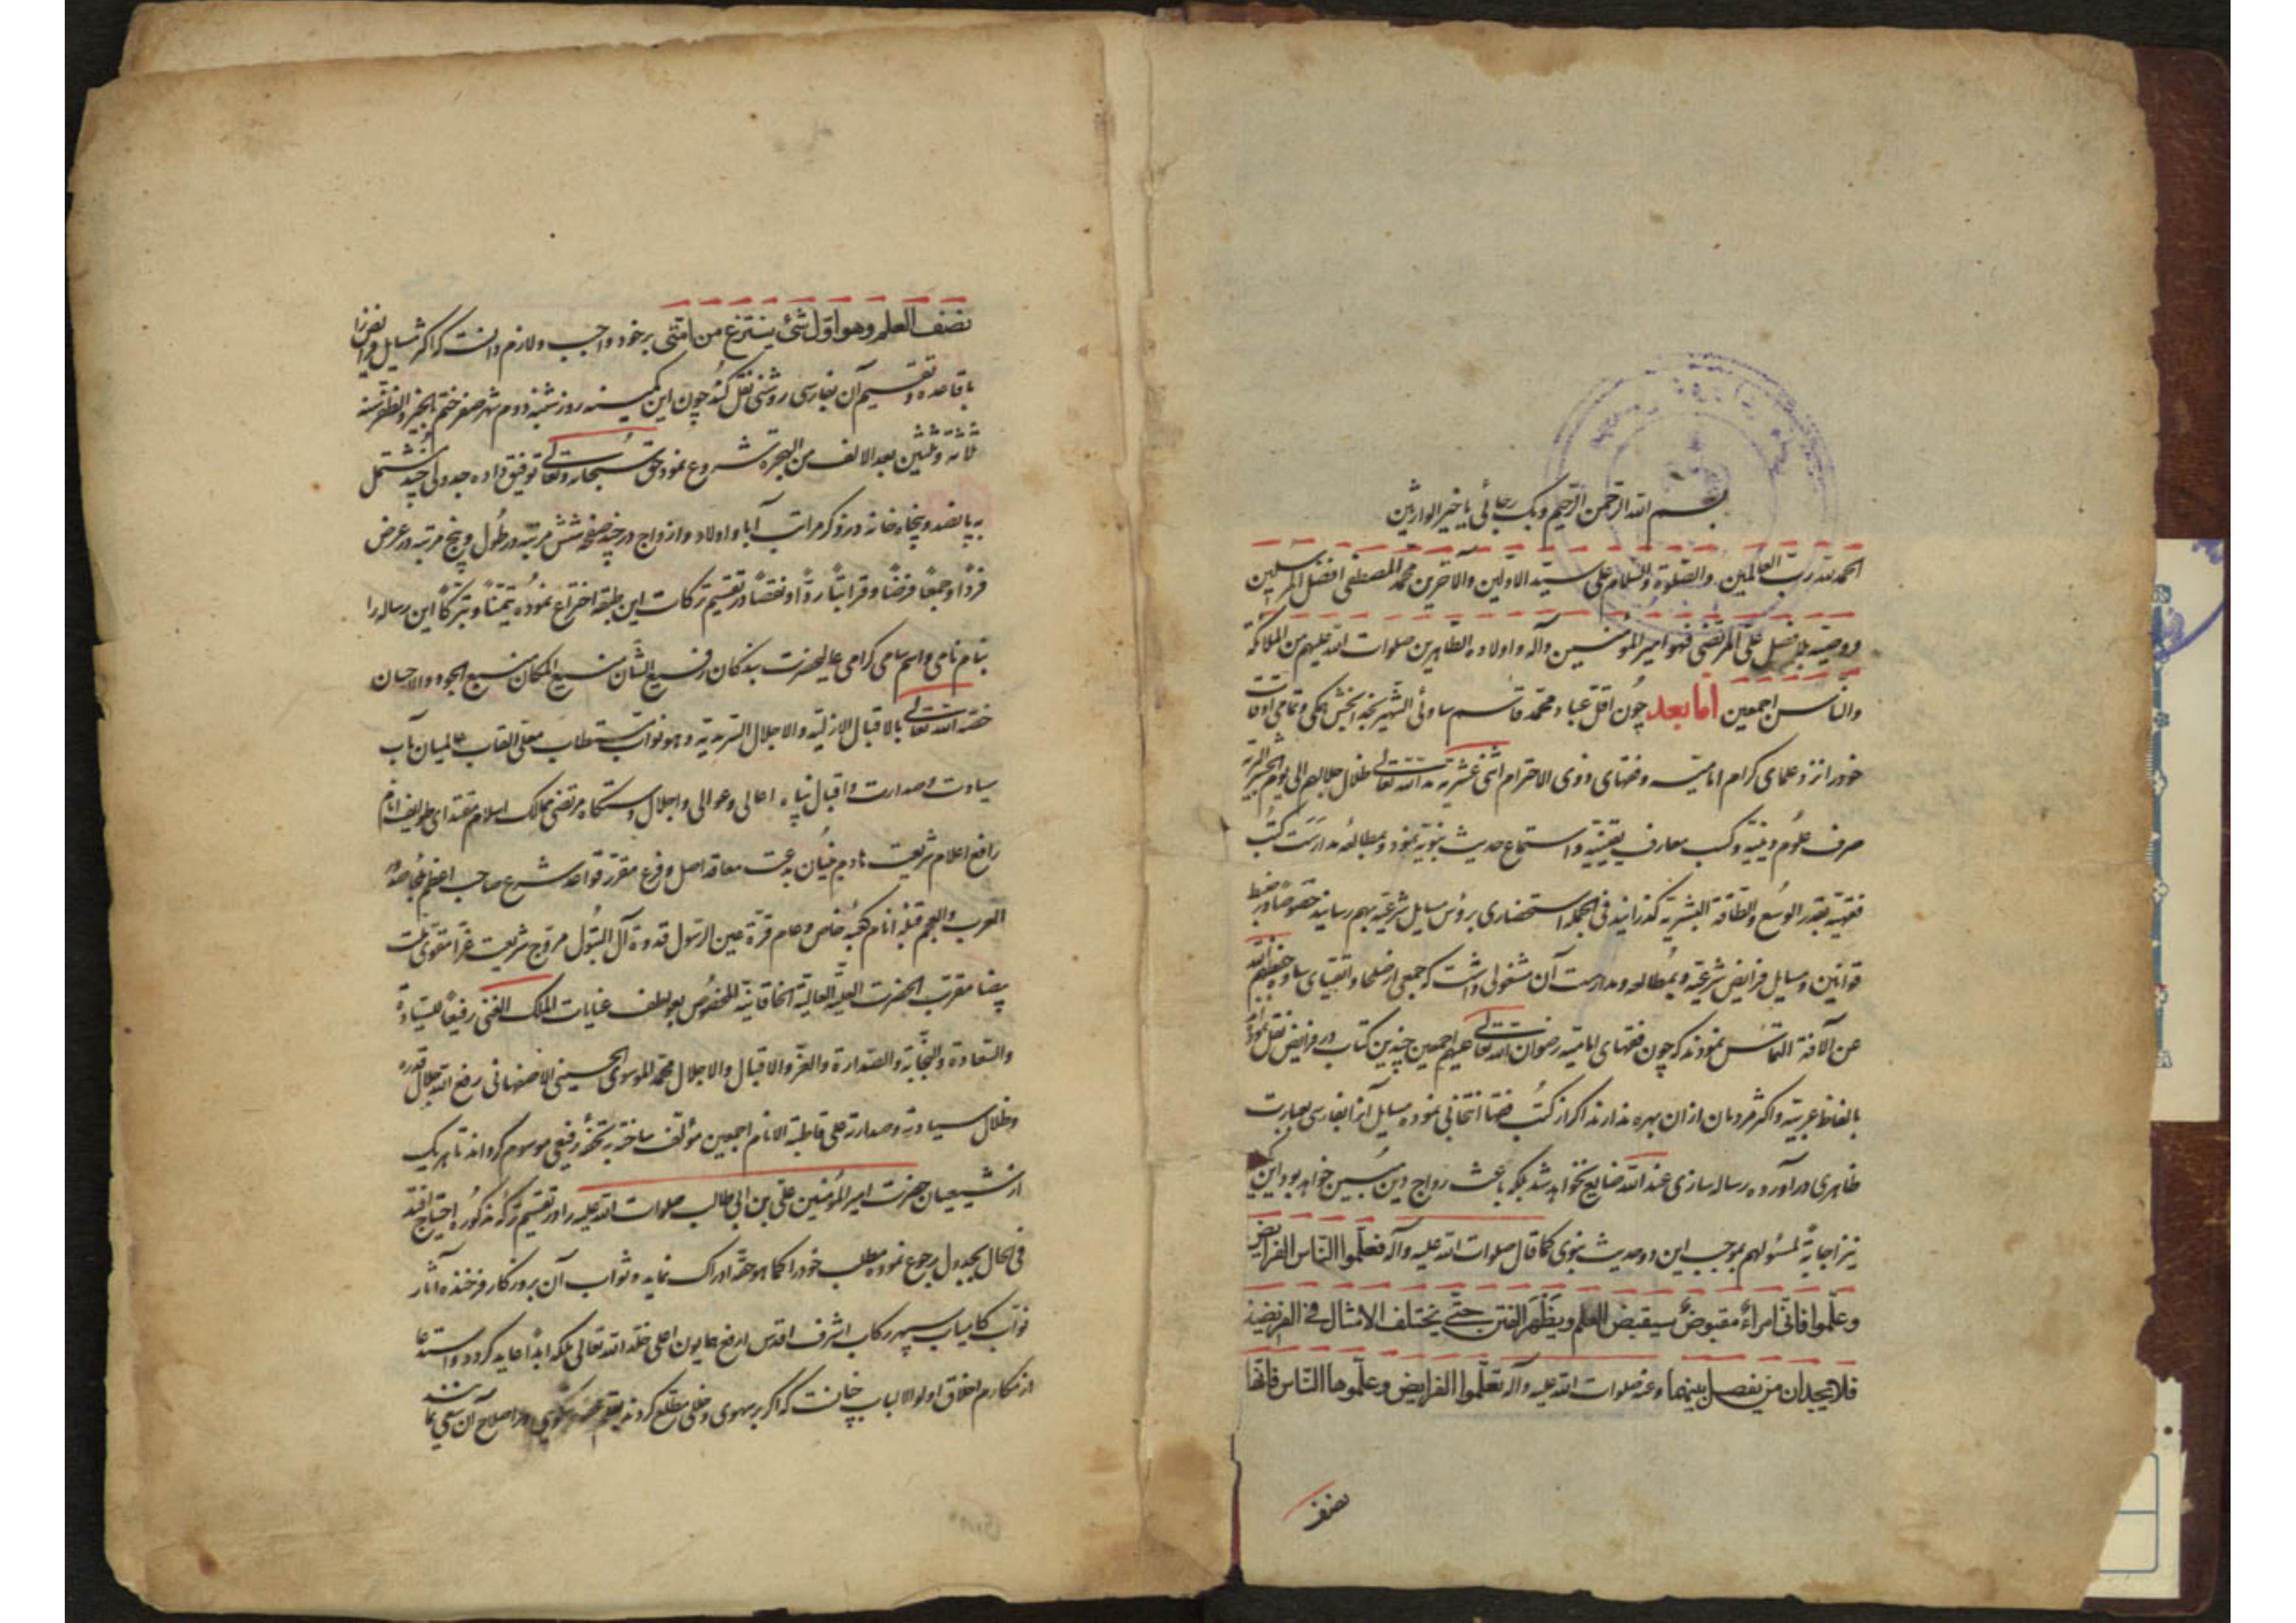 بسم الله الرحمن الرحیم وبک رجائی یا خیر الوارثین
الحمد لله رب العالمین والصلوة والسلام علی سید الاولین والآخرین محمد المصطفی افضل المرسلین
ووصیه بلا فصل علی المرتضی فهو امیر المؤمنین وآله واولاده الطاهرین صلوات الله علیهم من الملائکة
والناس اجمعین اما بعد چون اقل عباد محمد قاسم ساوئی الشهیر بخدابخش همکی و تمامی اوقات
خود را نزد علمای کرام امامیه و فقهای ذوی الاحترام اثنی عشریه مد الله تعالی ظلال جلالهم الی یوم الحشر
صرف علوم دینیه و کسب معارف یقینیه و استماع حدیث نبویه نمود و بمطالعه مدارست کتب
فقهیه بقدر الوسع والطاقة البشریه کذرانید فی الجمله استحضاری بر رؤس مسایل شرعیه بهم رسانید خصوصا در ضبط
قوانین و مسایل فرایض شرعیه و بمطالعه و مدارست آن مشغولی داشت که جمعی از صلحا و اتقیای ساوه حفظهم الله
عن الآفة التماس نمودند که چون فقهای امامیه رضوان الله تعالی علیهم اجمعین چندین کتاب در فرایض نقل نموده
بالفاظ عربیه و اکثر مردمان از آن بهره ندارند اکر از کتب فقها انتخابی نموده مسایل آنرا بفارسی بعبارت
ظاهری در آورده رساله سازی عند الله ضایع نخواهد شد بلکه باعث رواج دین مبین خواهد بود این
نیز اجابة لمسئولهم بموجب این دو حدیث نبوی کما قال صلوات الله علیه وآله فعلموا الناس الفرایض
وعلموا فانی امراء مقبوض سیقبض العلم ویظهر الفتن حتی یختلف الامثال فی الفریضة
فلا یجدان من یفصل بینهما وعنه صلوات الله علیه وآله تعلموا الفرایض وعلموها الناس فانها
نصف
نصف العلم وهو اول شئ ینتزع من امتی بر خود واجب و لازم دانست که اکثر مسایل فرایض را
با قاعده و تقسیم آن بفارسی روشنی نقل کند چون این کمینه روز شنبه دوم شهر صفر ختم بالخیر والظفر سنه
ثلاثه وثلثین بعد الالف من الهجرة شروع نمود حق سبحانه وتعالی توفیق داده جدولی چند مشتمل
به پانصد و پنجاه خانه در ذکر مراتب آبا و اولاد و ازواج در چند صفحه شش مرتبه در طول و پنج مرتبه در عرض
فردا وجمعا فرضا وقرابتا ردا ونقصا در تقسیم ترکات این طبقه اختراع نموده تیمنا وتبرکا این رساله را
بنام نامی و اسم سامی کرامی عالیحضرت بندکان رفیع الشان منیع المکان منبع الجود والاحسان
خصه الله تعالی بالاقبال الازلیة والاجلال السرمدیة وهو نواب مستطاب معلی القاب عالمیان مآب
سیادت و صدارت و اقبال پناه اعالی و عوالی و اجلال دستکاه مرتضی ممالک اسلام مقتدای طوایف انام
رافع اعلام شریعت هادم بنیان بدعت معاقد اصل و فرع مقرر قواعد شرع صاحب اعظم
العرب والعجم قبله انام کعبه خاص و عام قرة عین الرسول قدوة آل البتول مروج شریعت غرا مقوی ملت
بیضا مقرب الحضرت العلیة العالیة الخاقانیة المخصوص بعواطف عنایات الملک الغنی رفیعا للسیادة
والسعادة والنجابة والصدارة والعز والاقبال والاجلال محمد الموسوی الحسینی الاصفهانی رفع الله جلال قدره
وظلال سیادته وصدارته علی قاطبة الانام اجمعین مؤلف ساخته به تحفه رفیعی موسوم کرداند تا هر یک
از شیعیان حضرت امیر المؤمنین علی بن ابی طالب صلوات الله علیه را در تقسیم ترکه مذکوره احتیاج افتد
فی الحال بجدول رجوع نموده مطلب خود را کما هو حقه ادراک نماید و ثواب آن بروزکار فرخنده آثار
نواب کامیاب سپهر رکاب اشرف اقدس ارفع همایون اعلی خلد الله تعالی ملکه ابدا عاید کردد و استدعا
از مکارم اخلاق اولو الالباب چنانست که اکر بر سهوی و خللی مطلع کردند بقلم در اصلاح آن سعی نمایند